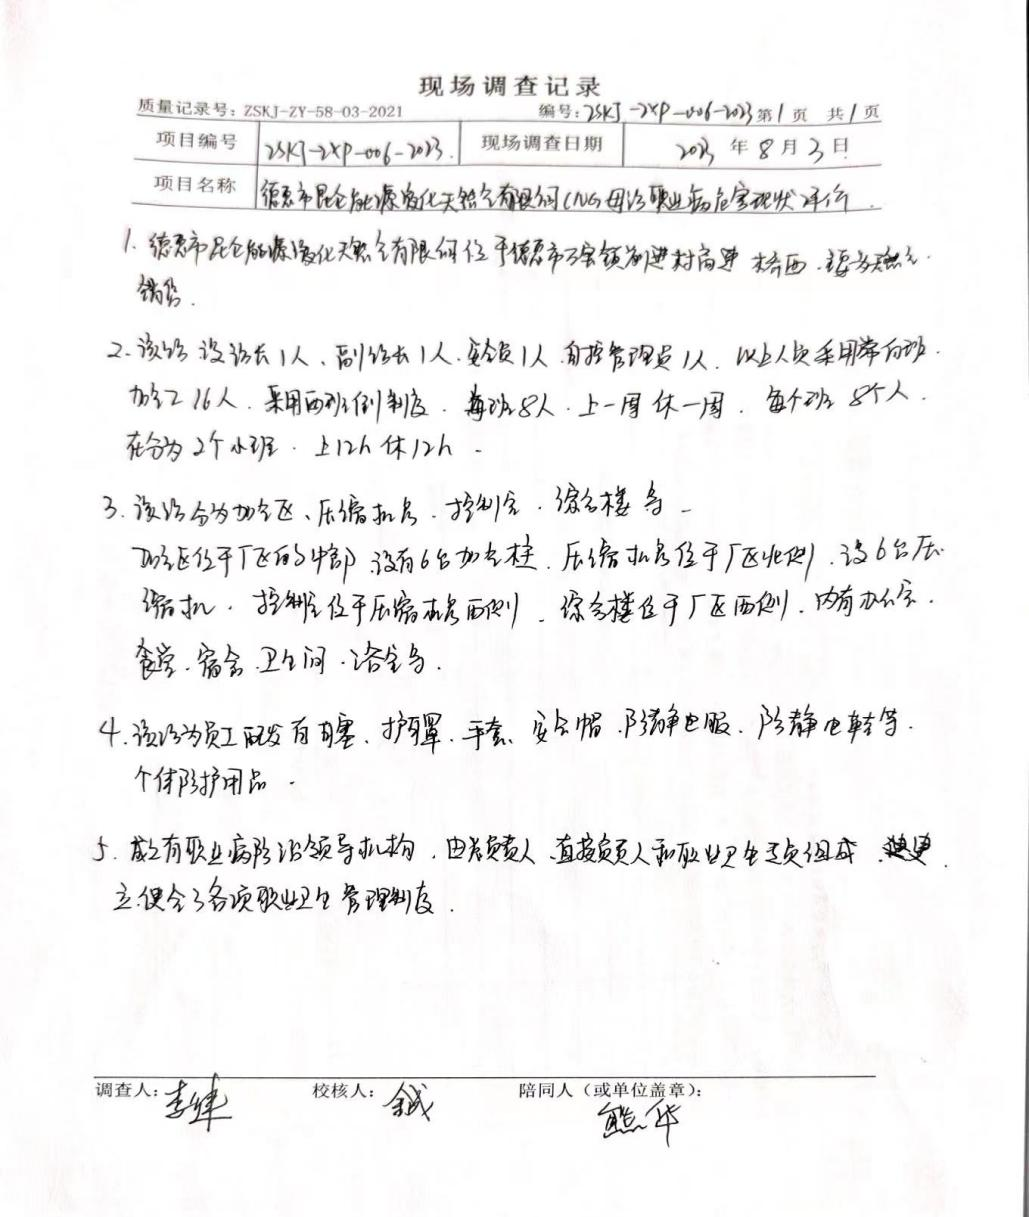 现场调查记录
质量记录号：ZSKJ-ZY-58-03-2021 编号：ZSKJ-ZXP-006-2023 第1页 共1页
项目编号 ZSKJ-ZXP-006-2023. 现场调查日期 2023 年 8 月 3 日
项目名称 德惠市昆仑能源液化天然气有限公司CNG母站职业病危害现状评价.
1. 德惠市昆仑能源液化天然气有限公司位于德惠市万宝镇前进村高速桥西.主要为天然气.
销售.
2. 该站设站长1人、副站长1人.安全员1人.自控管理员1人.以上人员采用常白班.
加气工16人.采用两班倒制度.每班8人.上一周休一周.每个班8个人.
在分为2个小班.上12h休12h.
3. 该站分为加气区、压缩机房.控制室.综合楼等.
加气区位于厂区的中部.设有6台加气柱.压缩机房位于厂区北侧.设6台压
缩机.控制室位于压缩机房西侧.综合楼位于厂区西侧.内有办公室.
食堂.宿舍.卫生间.浴室等.
4. 该站为员工配发有耳塞、护耳罩.手套、安全帽.防静电服、防静电鞋等.
个体防护用品.
5. 成立有职业病防治领导机构.由负责人、直接负责人和职业卫生专员组成.建
立健全了各项职业卫生管理制度.
调查人： 校核人： 陪同人（或单位盖章）：